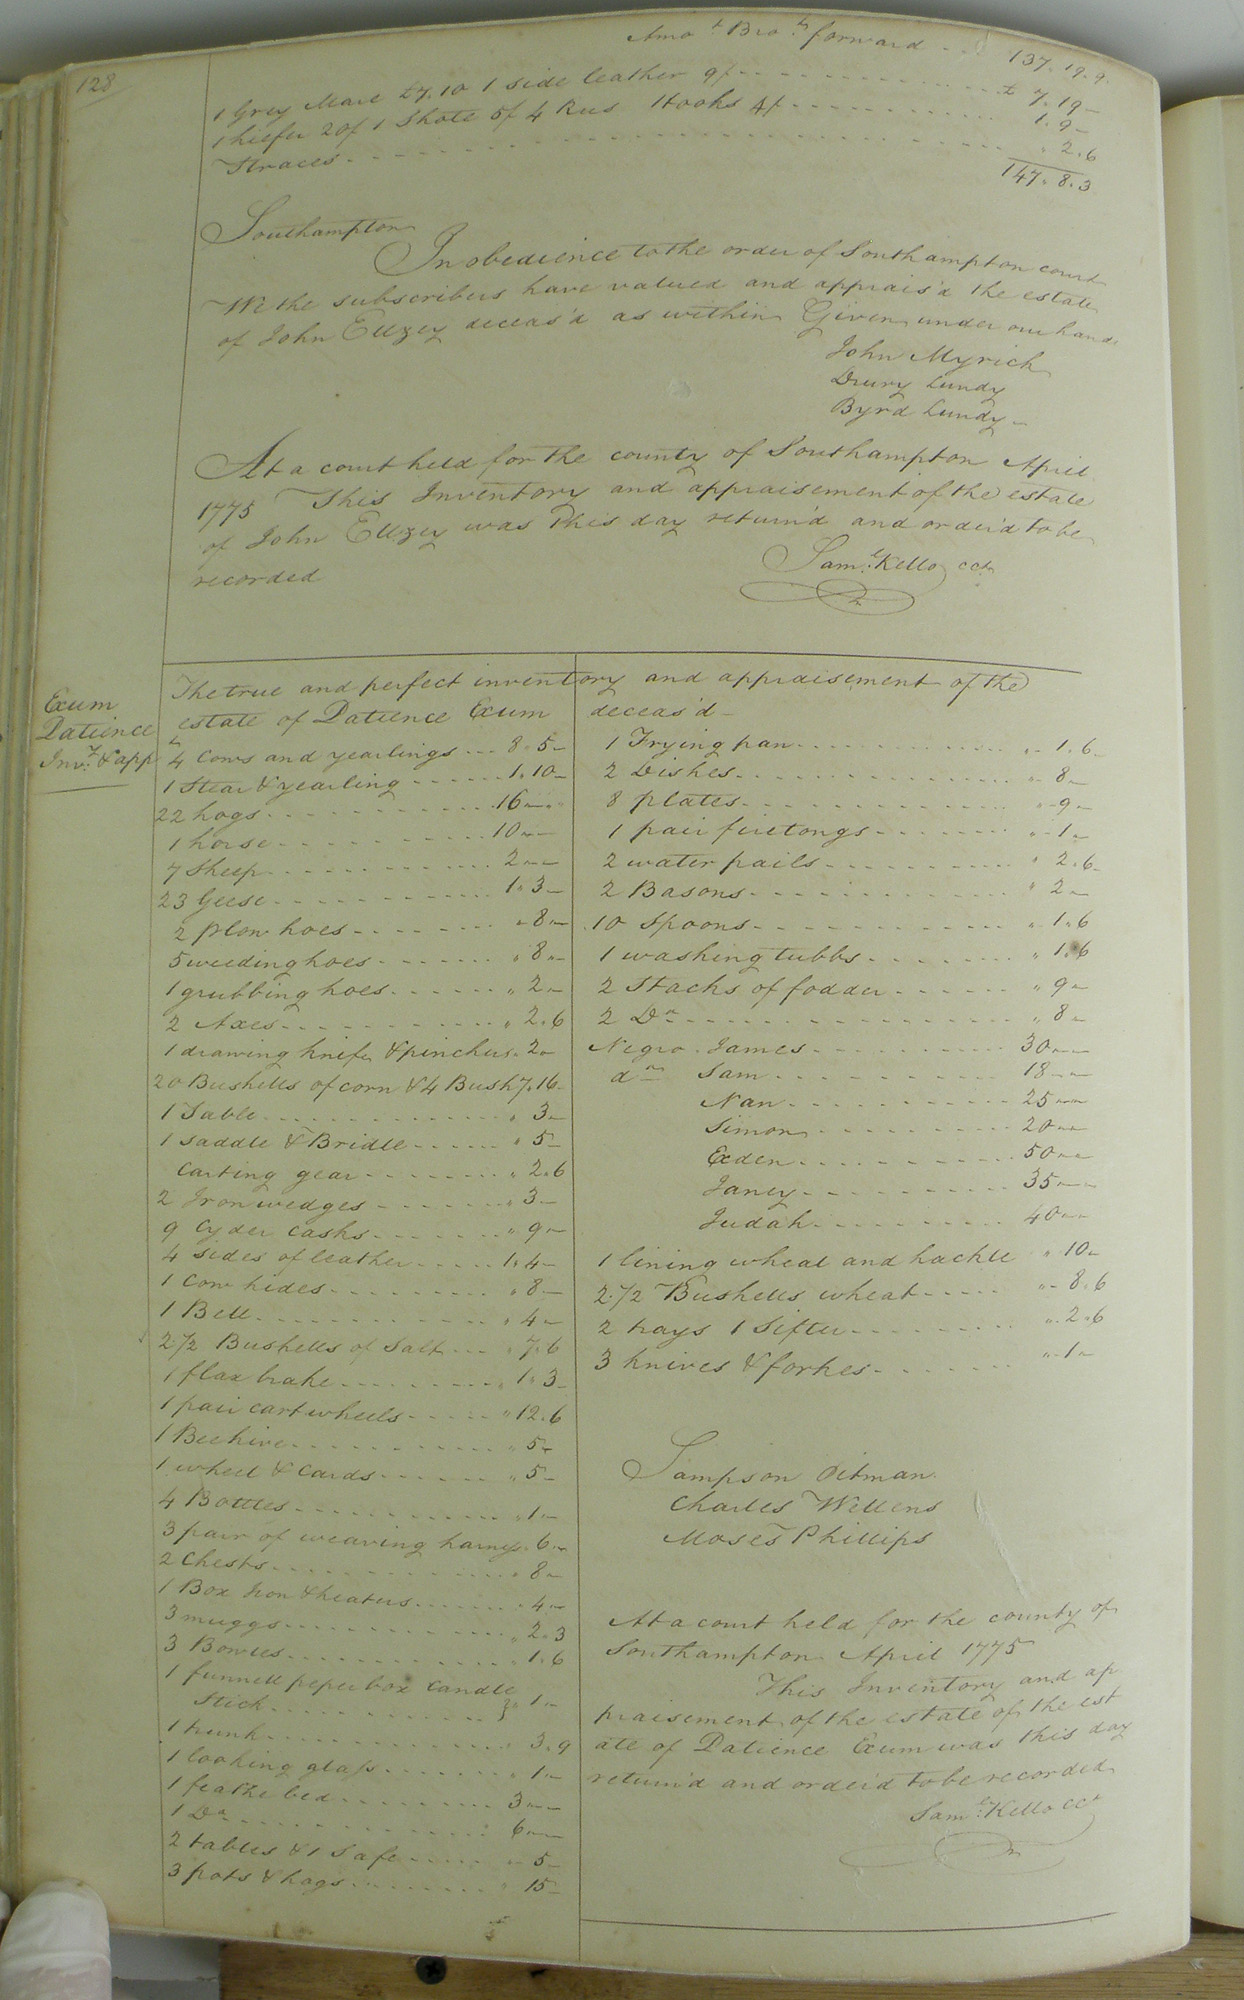 128
Amot Brot forward - - 137.19.9
1 Grey Mare £7.10 1 side leather 9/ - - - - £ 7.19 -
1 heifer 20/ 1 Shote 5/ 4 Rus Hooks 4/ - - - - 1.9 -
Traces - - - - " 2.6
147.8.3
Southampton
In obedience to the order of Southampton court
We the subscribers have valued and apprais'd the estate
of John Ellzey deceas'd as within Given under our hands
John Myrick
Drury Lundy
Byrd Lundy -
At a court held for the county of Southampton April
1775 This Inventory and appraisement of the estate
of John Ellzey was this day return'd and order'd to be
recorded
Saml Kello cck
Exum
Patience
Invy & app
The true and perfect inventory and appraisement of the
estate of Patience Exum deceas'd -
4 Cows and yearlings - - - 8.5 -
1 Stear & yearling - - - - 1.10 -
22 hogs - - - - 16 - -
1 horse - - - - 10 - -
7 Sheep - - - - 2 - -
23 Geese - - - - 1.3 -
2 plow hoes - - - - " 8 -
5 weeding hoes - - - - " 8 -
1 grubbing hoes - - - - " 2 -
2 Axes - - - - " 2.6
1 drawing knife & pinchers . 2 -
20 Bushells of corn & 4 Bush 7.16 -
1 Table - - - - " 3 -
1 saddle & Bridle - - - - " 5 -
Carting gear - - - - " 2.6
2 Iron wedges - - - - " 3 -
9 Cyder Casks - - - - " 9 -
4 sides of leather - - - - 1.4 -
1 Cow hides - - - - " 8 -
1 Bell - - - - " 4 -
2 1/2 Bushells of Salt - - - " 7.6
1 flax brake - - - - 1.3 -
1 pair cart wheels - - - - " 12.6
1 Bee hive - - - - " 5 -
1 wheel & Cards - - - - " 5 -
4 Bottles - - - - " 1 -
3 pair of weaving harness . 6 -
2 Chests - - - - " 8 -
1 Box Iron & heaters - - - - " 4 -
3 muggs - - - - " 2.3
3 Bowles - - - - " 1.6
1 funnell peper box Candle
Stick - - - - } " 1 -
1 trunk - - - - " 3.9
1 looking glass - - - - " 1 -
1 feathe bed - - - - 3 - -
1 Do - - - - 6 - -
2 tables & 1 Safe - - - - " 5 -
3 pots & hogs - - - - " 15 -
1 Frying pan - - - - " 1.6 -
2 Dishes - - - - " 8 -
8 plates - - - - " 9 -
1 pair firetongs - - - - " 1 -
2 water pails - - - - " 2.6 -
2 Basons - - - - " 2 -
10 Spoons - - - - " 1.6
1 washing tubbs - - - - " 1.6
2 Stacks of fodder - - - - " 9 -
2 Do - - - - " 8 -
Negro James - - - - 30 - -
do Sam - - - - 18 - -
Nan - - - - 25 - -
Simon - - - - 20 - -
Exden - - - - 50 - -
Janey - - - - 35 - -
Judah - - - - 40 - -
1 lining wheal and hackle " 10 -
2 1/2 Bushells wheat - - - - " 8.6
2 trays 1 Sifter - - - - " 2.6
3 knives & forkes - - - - " 1 -
Sampson Pitman
Charles Wellens
Moses Phillips
At a court held for the county of
Southampton April 1775
This Inventory and ap
praisement of the estate of the est
ate of Patience Exum was this day
return'd and order'd to be recorded
Saml Kello cck